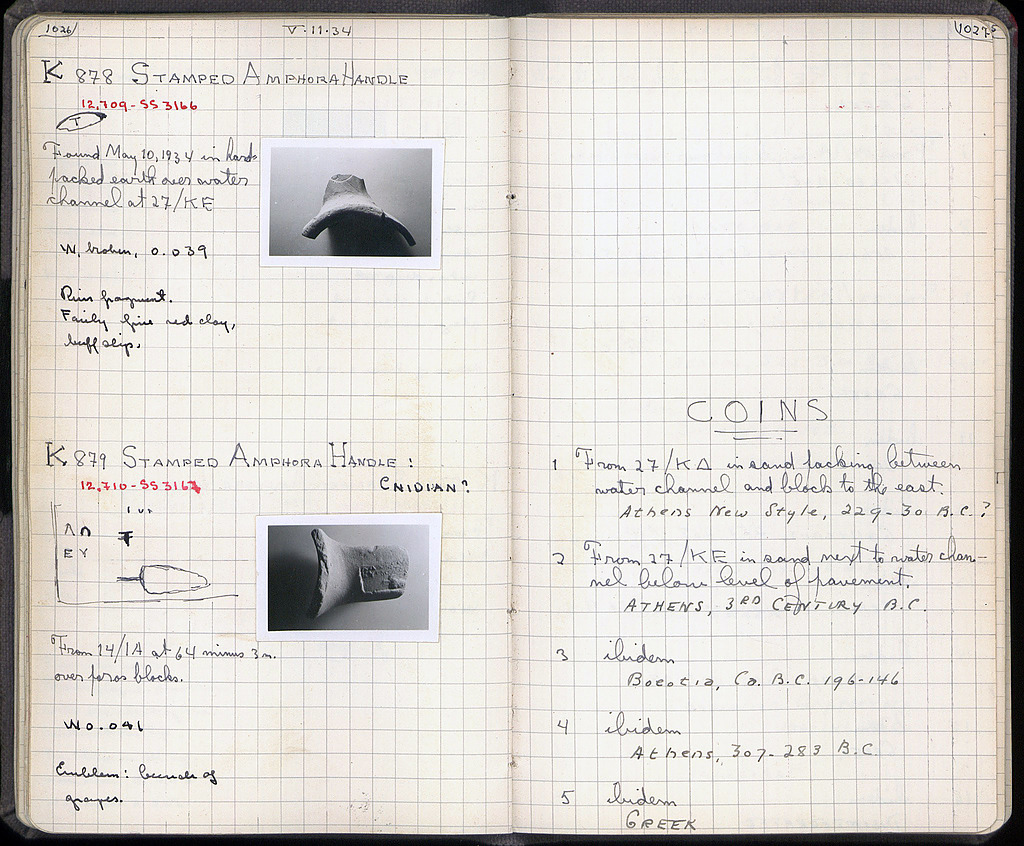 1026
V·11·34
K 878 STAMPED AMPHORA HANDLE
12,709-SS 3166
T
Found May 10, 1934 in hard
packed earth over water
channel at 27/ΚΕ
W, broken, 0.039
Rim fragment.
Fairly fine red clay,
buff slip.
K 879 STAMPED AMPHORA HANDLE:
CNIDIAN?
12,710-SS 3167
ΕΥ
From 14/ΙΑ at 64 minus 3m.
over poros blocks.
W 0.041
Emblem: bunch of
grapes.
1027
COINS
1 From 27/ΚΔ in sand packing between
water channel and blocks to the east.
Athens New Style, 229-30 B.C.?
2 From 27/ΚΕ in sand next to water chan-
nel below level of pavement.
ATHENS, 3RD CENTURY B.C.
3 ibidem
Boeotia, Ca. B.C. 196-146
4 ibidem
Athens, 307-283 B.C.
5 ibidem
GREEK